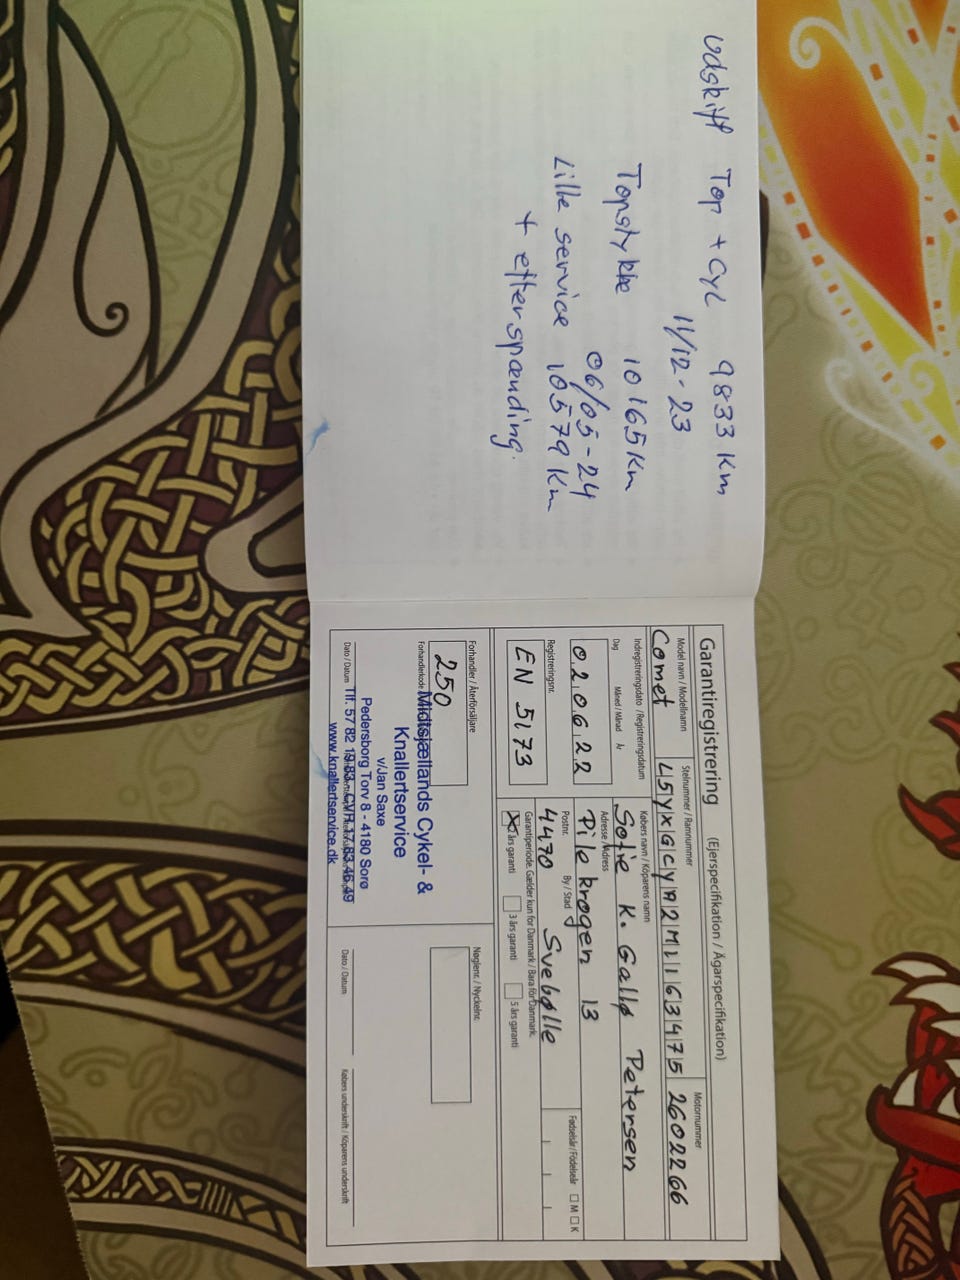 Udskift Top + CYL 9833 Km
11/12-23
Topstykke 10165 Km
06/05-24
Lille service 10579 Km
+ efterspænding.
Garantiregistrering (Ejerspecifikation / Ägarspecifikation)
Model navn / Modellnamn Stelnummer / Ramnummer Motornummer
Comet L5YXGCYA2M1163475 2602266
Indregistreringsdato / Registreringsdatum
Dag Måned / Månad År
020622
Købers navn / Köparens namn
Sofie K. Galle Petersen
Registreringsnr.
EN 5173
Adresse / Adress
Pilekrogen 13
Postnr. By / Stad Fødselsår / Födelseår M K
4470 Svebølle
Garantiperiode. Gælder kun for Danmark / Bara för Danmark.
2 års garanti 3 års garanti 5 års garanti
Forhandler / Återförsäljare
250
Forhandlerkode
Nøglenr. / Nyckelnr.
Midtsjællands Cykel- &
Knallertservice
v/Jan Saxe
Pedersborg Torv 8 - 4180 Sorø
Tlf. 57 82 19 83 CVR 17 83 46 49
www.knallertservice.dk
Dato / Datum
Dato / Datum Købers underskrift / Köparens underskrift